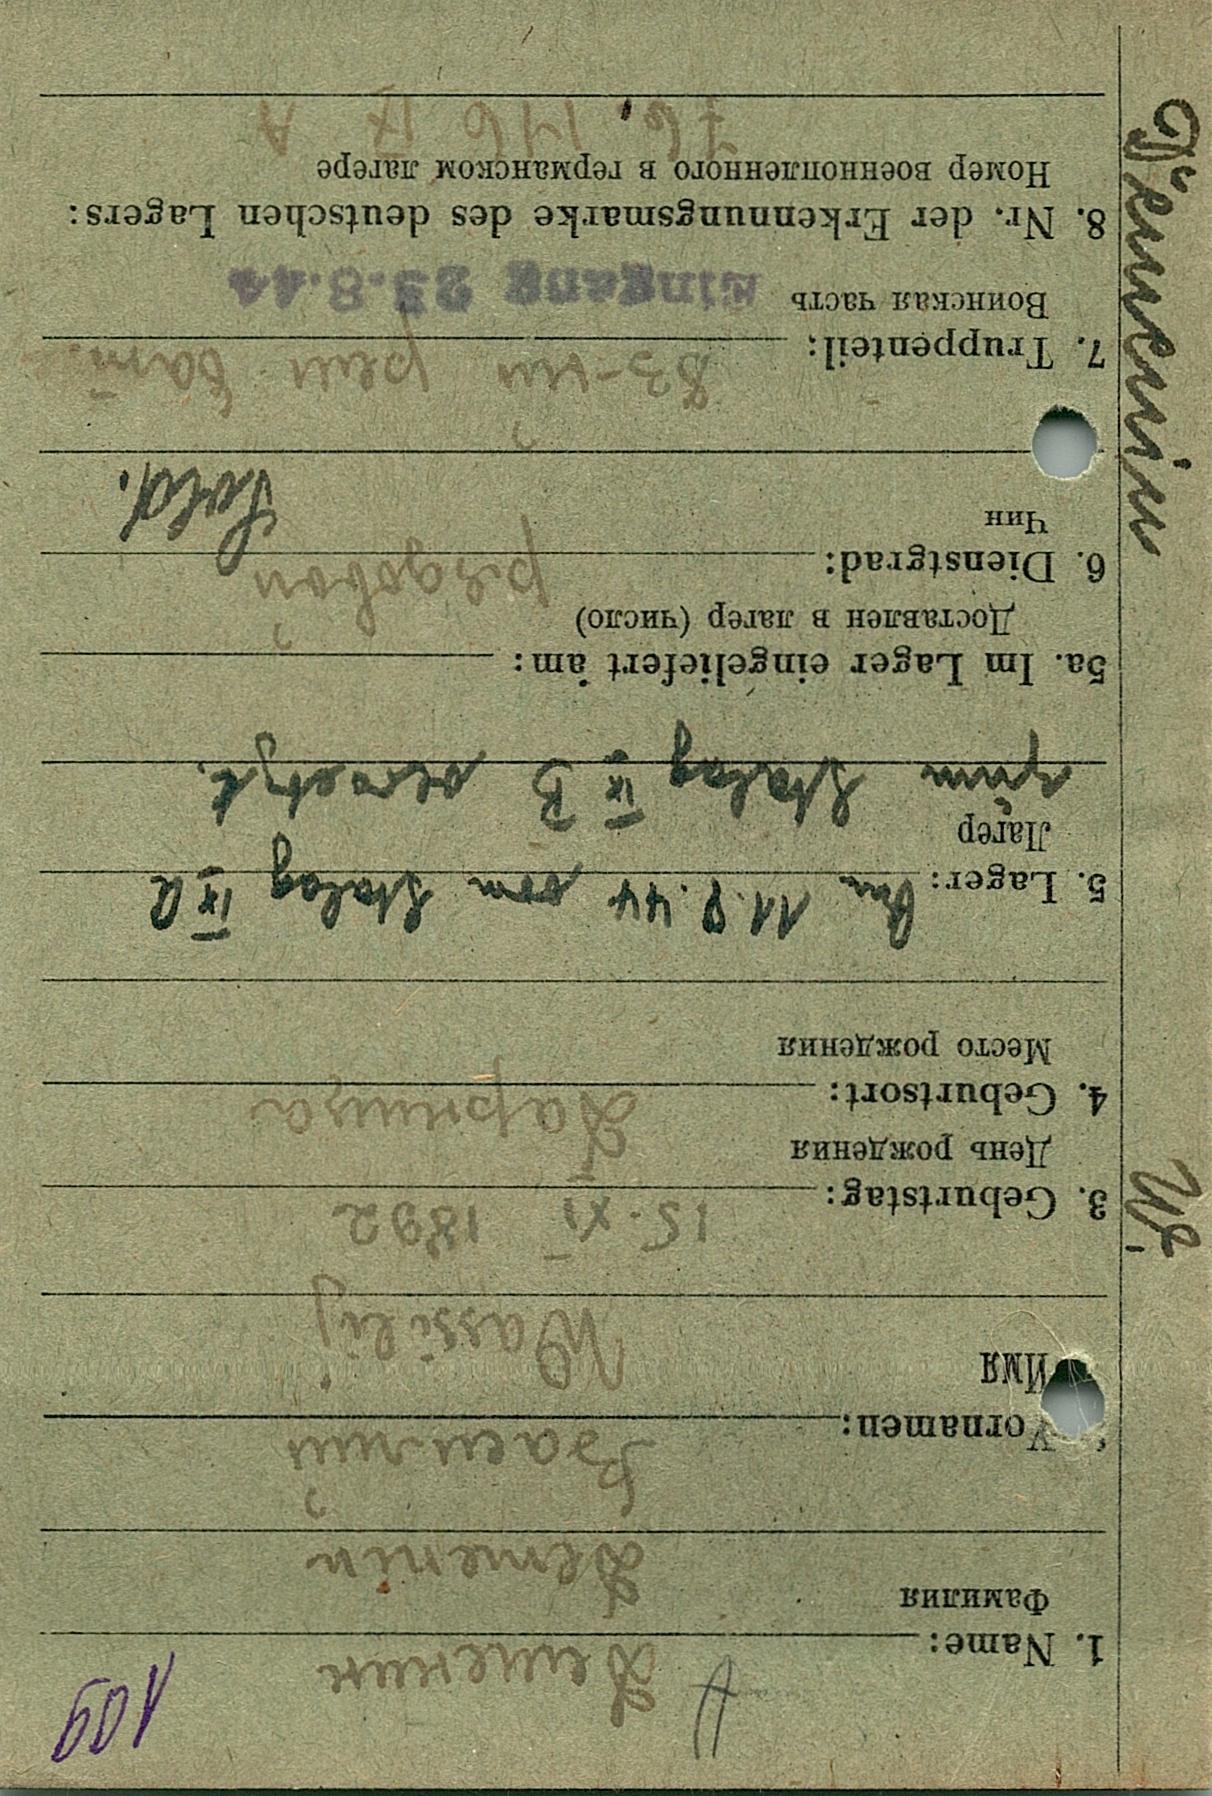 109
A
1. Name: Деменин
Фамилия
Demenin
Vornamen: Василий
Имя
Wassilij
3. Geburtstag: 15. XI 1892
День рождения
4. Geburtsort:
Место рождения
5. Lager: Am 11.8.44 vom Stalag IX A
Лагер
zum Stalag IX B versetzt.
5a. Im Lager eingeliefert am:
Доставлен в лагер (число)
6. Dienstgrad: рядовой Sold.
Чин
7. Truppenteil: 83-ий бат.
Воинская часть
Eingang 23.8.44
8. Nr. der Erkennungsmarke des deutschen Lagers:
Номер военнопленного в германском лагере
76.146 IX A